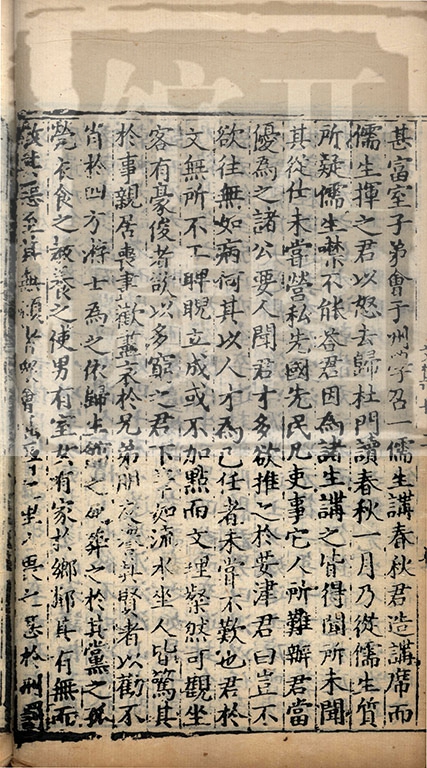 甚富室子弟會于州學召一儒生講春秋君造講席而
儒生揮之君以怒去歸杜門讀春秋一月乃從儒生質
所疑儒生噤不能答君因為諸生講之皆得聞所未聞
其從仕未嘗營私先國先民凡吏事它人所難辦君當
優為之諸公要人聞君才多欲推之於要津君曰豈不
欲往無如病何其以人才為已任者未嘗不歎也君於
文無所不工睥睨立成或不加點而文理粲然可觀坐
客有豪俊者欲以多窮之君下筆如流水坐人皆驚其
於事親居喪盡歡盡哀於兄弟朋友濟其賢者以勸不
肖於四方游士為之依歸生館之死葬之於其黨之孤
煢衣食之教養之使男有室女有家於鄉鄰其有無而
至其無